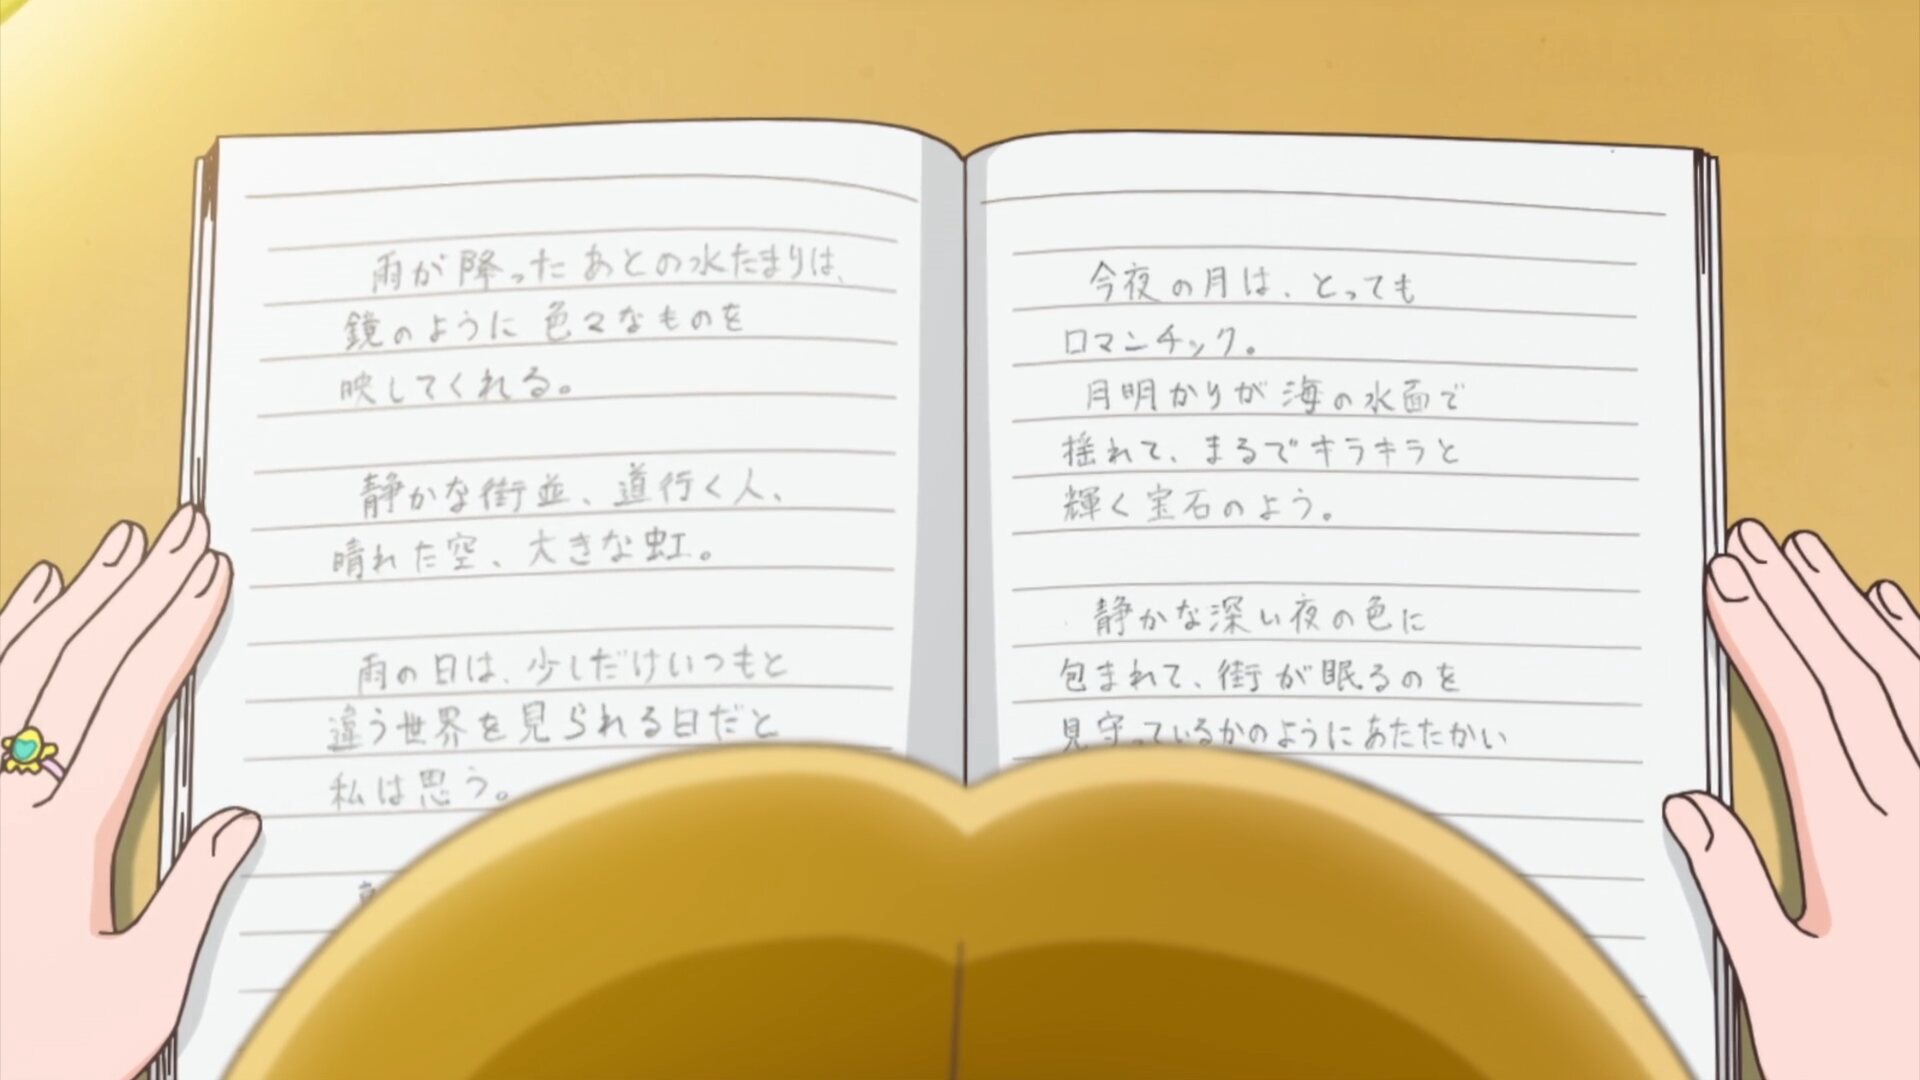 雨が降ったあとの水たまりは、
鏡のように色々なものを
映してくれる。
静かな街並、道行く人、
晴れた空、大きな虹。
雨の日は、少しだけいつもと
違う世界を見られる日だと
私は思う。
今夜の月は、とっても
ロマンチック。
月明かりが海の水面で
揺れて、まるでキラキラと
輝く宝石のよう。
静かな深い夜の色に
包まれて、街が眠るのを
見守っているかのようにあたたかい